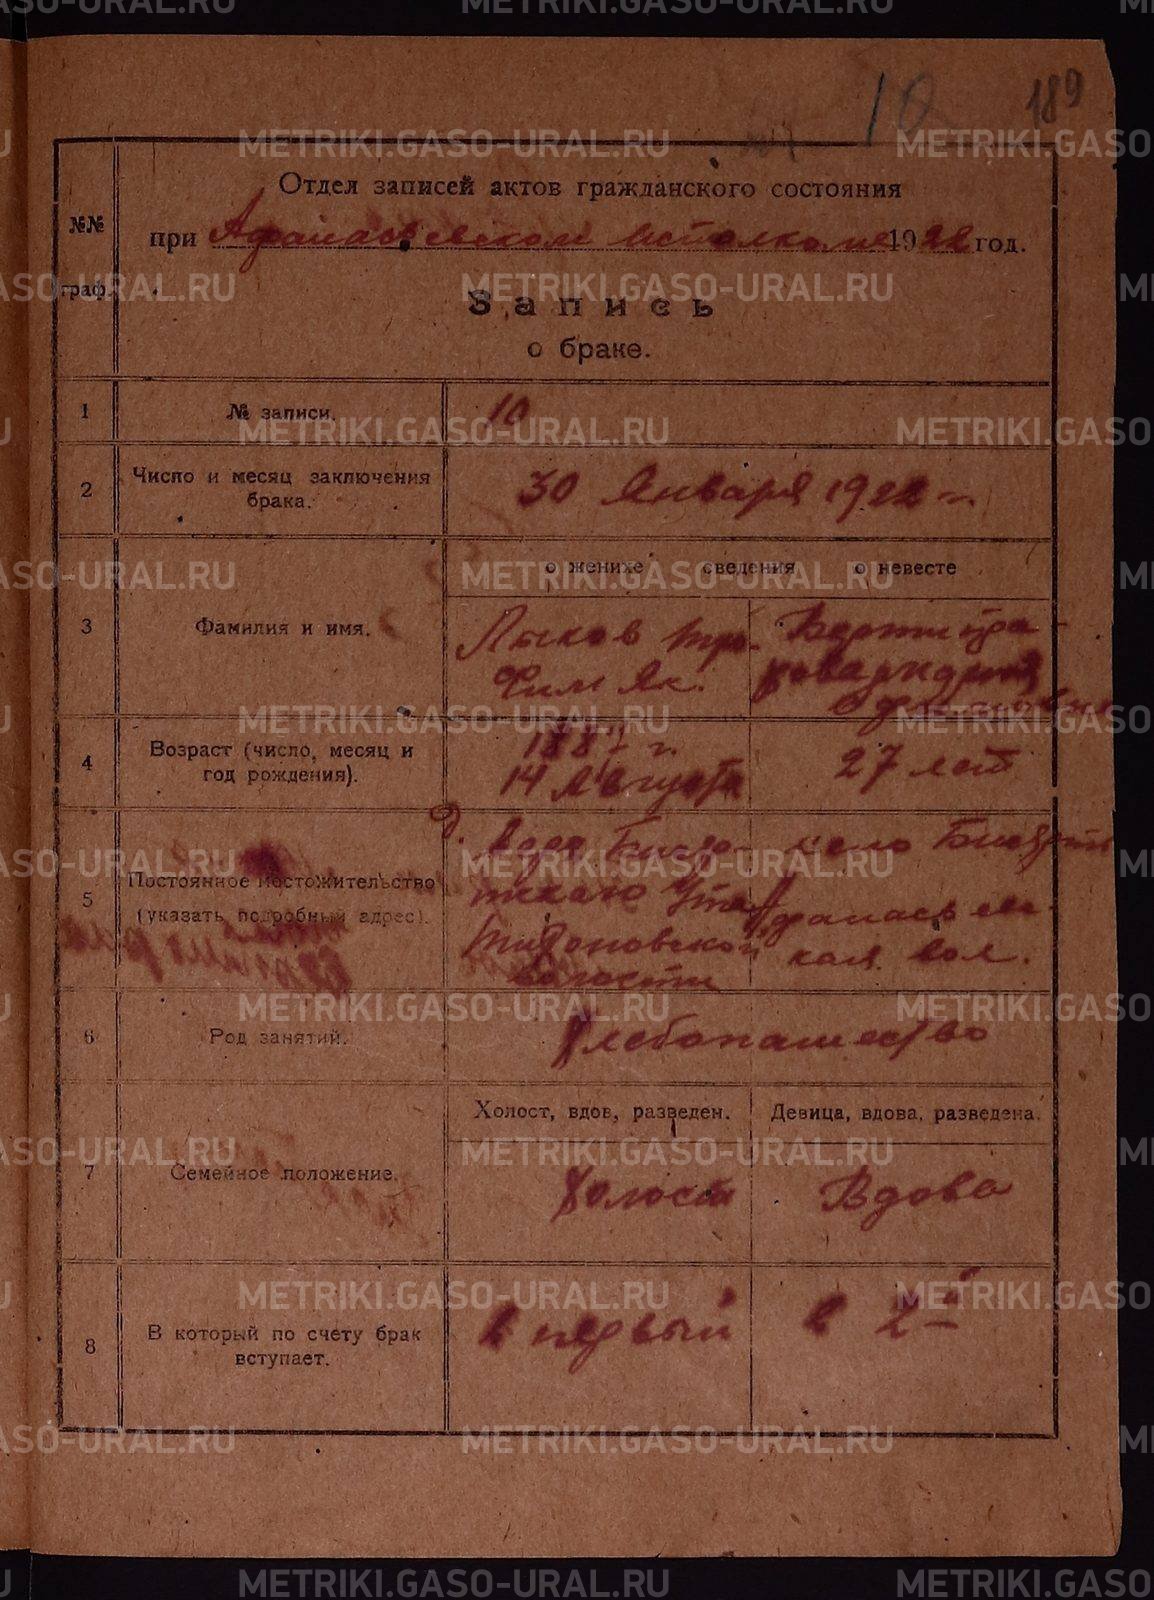 10 189
Отдел записей актов гражданского состояния
№№ граф.
при Афанасьевском исполкоме 1922 год.
Запись
о браке.
1 № записи. 10
2 Число и месяц заключения брака. 30 Января 1922 г.
о женихе сведения о невесте
3 Фамилия и имя.
Лыков Тро-
фим Як.
4 Возраст (число, месяц и год рождения).
1887 г.
14 Августа
27 лет
5 Постоянное местожительство (указать подробный адрес).
д.
село
Афанасьевс-
кая вол.
волости
6 Род занятий. Хлебопашество
Холост, вдов, разведен. Девица, вдова, разведена.
7 Семейное положение. Холост Вдова
8 В который по счету брак вступает. в первый в 2й
METRIKI.GASO-URAL.RU